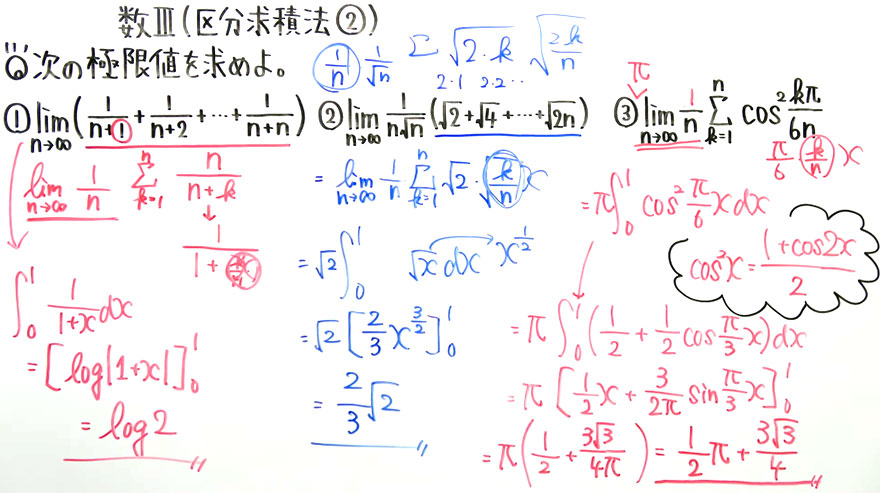 数Ⅲ(区分求積法②)
Q 次の極限値を求めよ。
① lim_{n→∞} (1/(n+1) + 1/(n+2) + … + 1/(n+n))
lim_{n→∞} 1/n Σ_{k=1}^{n} n/(n+k)
↓
1/(1+k/n)
∫_0^1 1/(1+x) dx
= [log|1+x|]_0^1
= log2
1/n 1/√n Σ √2·k √(2k/n)
2·1 2·2 ..
② lim_{n→∞} 1/(n√n) (√2+√4+…+√2n)
= lim_{n→∞} 1/n Σ_{k=1}^{n} √2·√(k/n) x
= √2 ∫_0^1 √x dx x^{1/2}
= √2 [2/3 x^{3/2}]_0^1
= 2/3 √2
π
③ lim_{n→∞} 1/n Σ_{k=1}^{n} cos² kπ/6n
π/6 (k/n) x
= π∫_0^1 cos² π/6 x dx
cos²x = (1+cos2x)/2
= π ∫_0^1 (1/2 + 1/2 cos π/3 x) dx
= π [1/2 x + 3/2π sin π/3 x]_0^1
= π (1/2 + 3√3/4π) = 1/2 π + 3√3/4